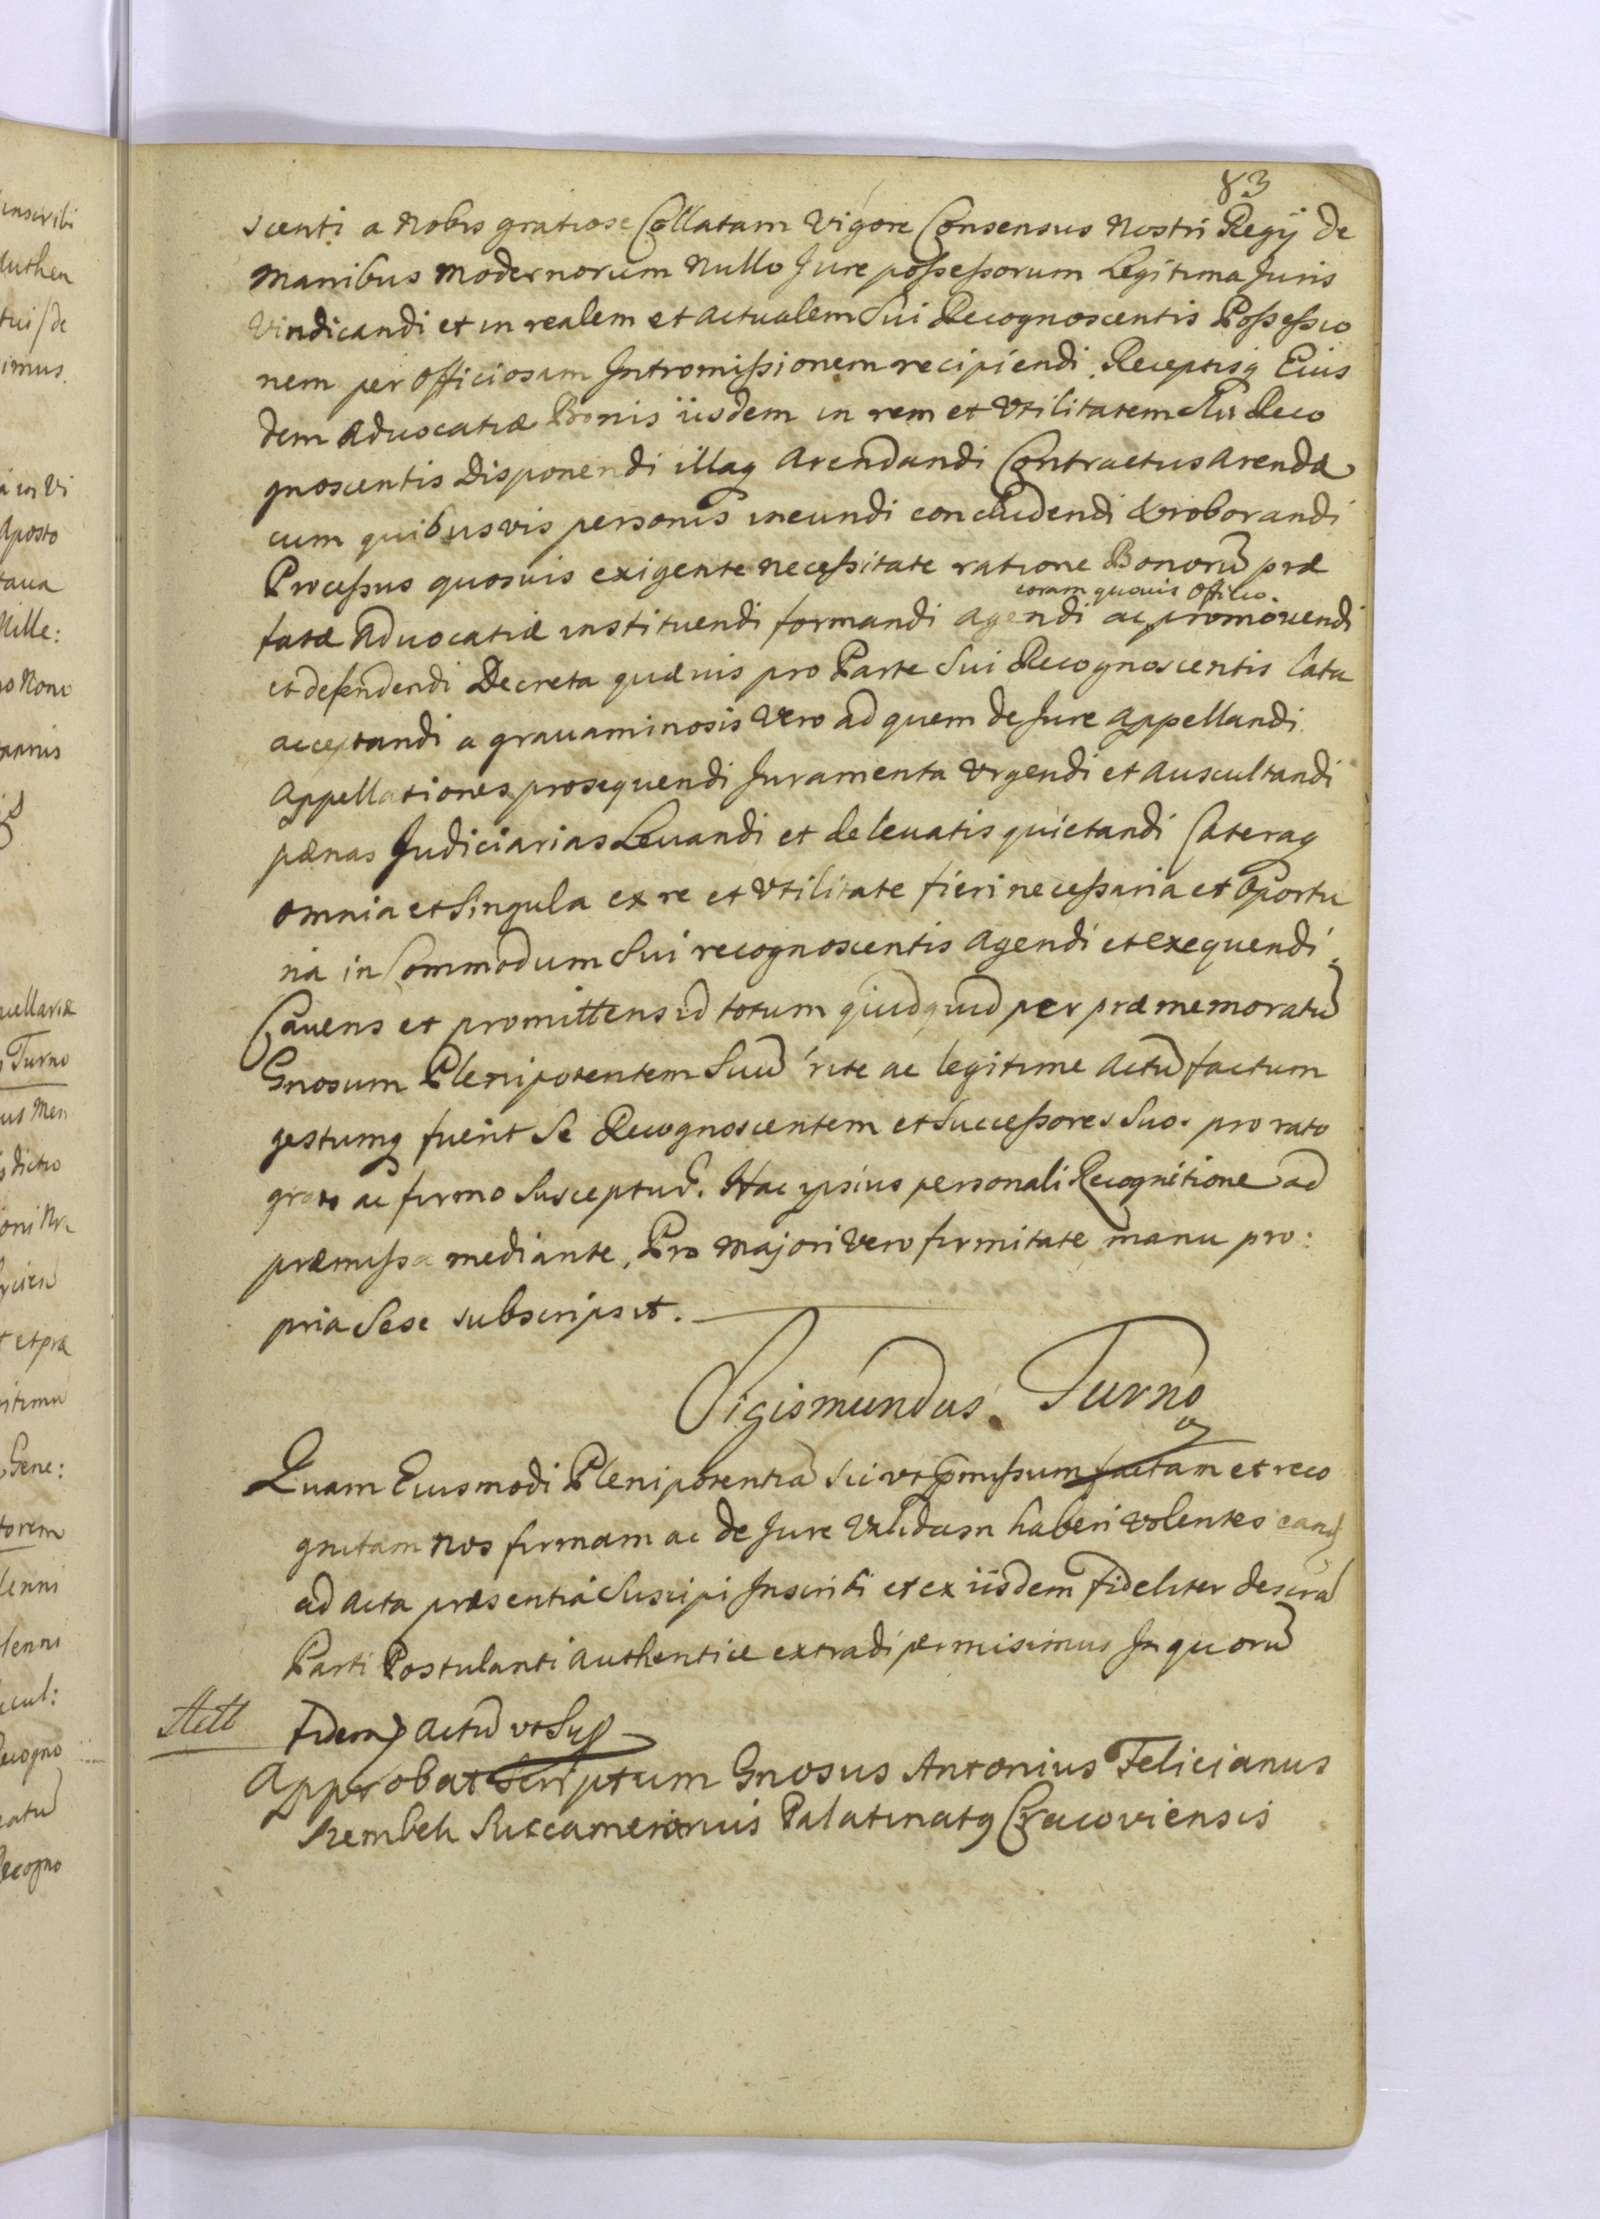 83
scenti a Nobis gratiose Collatam Vigore Consensus Nostri Regij de
Manibus Modernorum Nullo Jure possessorum Legitima Juris
Vindicandi et in realem et actualem Sui Recognoscentis Possessio
nem per Officiosam Intromissionem recipiendi. Receptisq Eius
dem Advocatiæ Bonis iisdem in rem et Vtilitatem Sui Reco
gnoscentis Disponendi illaq Arendandi Contractus Arendæ
cum quibusvis personis ineundi concludendi & roborandi
Processus quosuis exigente necessitate ratione Bonorũ præ
coram quouis Officio.
fatæ Advocatiæ instituendi formandi agendi ac promouendi
et defendendi Decreta quæuis pro Parte Sui Recognoscentis lata
acceptandi a grauaminosis Vero ad quem de Jure Appellandi
Appellationes prosequendi Juramenta Vrgendi et Auscultandi
pænas Judiciarias Leuandi et de leuatis quietandi Cæteraq
omnia et Singula ex re et Vtilitate fieri necessaria et Oportu
na in Commodum Sui recognoscentis Agendi et exequendi.
Cauens et promittens id totum quidquid per præmemoratũ
Gnosum Plenipotentem Suũ rite ac legitime Actũ factum
gestumq fuerit Se Recognoscentem et Successores Suos pro rato
grato ac firmo Suscepturũ. Hac ipsius personali Recognitione ad
præmissa mediante, Pro Majori Vero firmitate manu pro:
pria Sese subscripsit.
Sigismundus Turno
Quam Eiusmodi Plenipotentiã Sic vt p̃missum factam et reco
gnitam Nos firmam ac de Jure Validam haberi Volentes eanq
ad Acta præsentia Suscipi Inscribi et ex iisdem fideliter descrã
Parti Postulanti Authentice extradi permisimus In quorũ
Actt fidem Actũ vt Sup
Approbat Scriptum Gnosus Antonius Felicianus
Szembek Succamerarius Palatinatq Cracoviensis